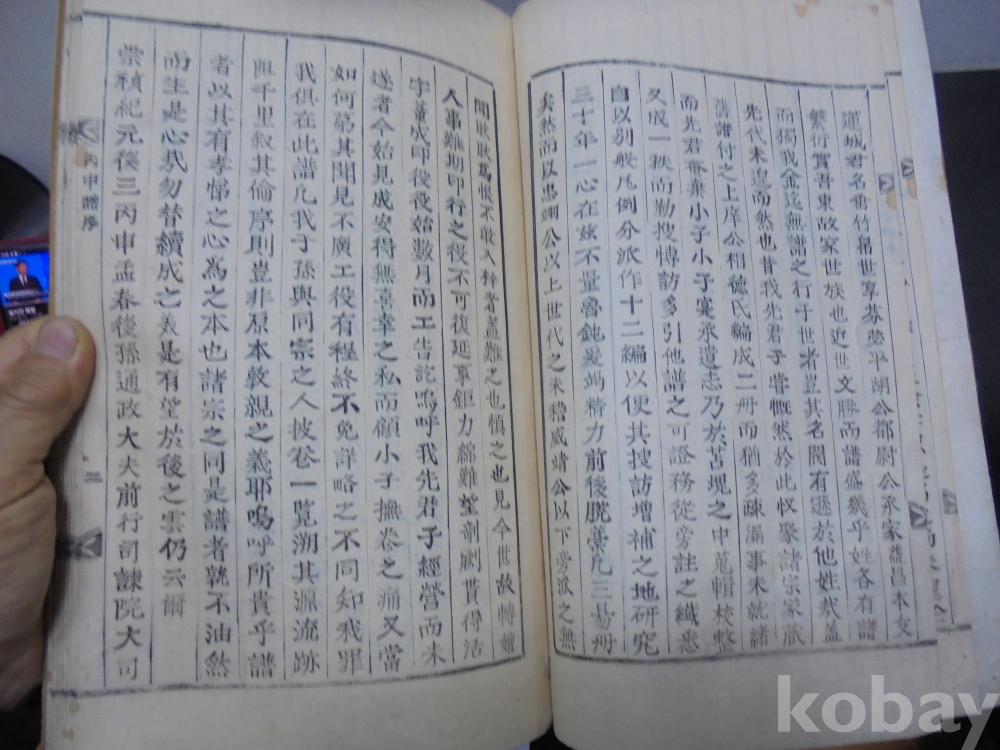 蓮城君名垂竹帛世享苾芬平胡公都尉公承家益昌本支
繁衍實吾東故家世族也近世文勝而譜盛幾乎姓各有譜
而獨我金迄無譜之行于世者豈其名閥有遜於他姓哉盖
先代未遑而然也昔我先君子嘗慨然於此収聚諸宗家派
舊譜付之上庠公相德氏編成二冊而猶多疎漏事未就緒
而先君奄棄小子小子寔承遺志乃於苫塊之中蒐輯校整
又成一秩而勤搜博訪多引他譜之可證務從旁註之纖悉
自以別般凡例分派作十二編以便其搜訪增補之地研究
三十年一心在玆不量魯鈍爰竭精力前後脫藁凡三易冊
矣然而以忠翊公以上世代之未稽威靖公以下旁派之無
聞耿耿爲恨不敢入梓者盖難之也慎之也見今世故轉嬗
人事難期印行之役不可復延事鉅力綿難堪剞劂貰得活
字董成印役役始數月而工告訖嗚呼我先君子經營而未
遂者今始見成安得無景幸之私而顧小子撫卷之痛又當
如何第其聞見不廣工役有程終不免詳略之不同知我罪
我俱在此譜凡我子孫與同宗之人披卷一覧溯其源流跡
與千里叙其倫序則豈非原本敦親之義耶嗚呼所貴乎譜
者以其有孝悌之心爲之本也諸宗之同是譜者孰不油然
而生是心哉勿替續成之義是有望於後之雲仍云爾
崇禎紀元後三丙申孟春後孫通政大夫前行司諫院大司
丙申譜序
三
kobay